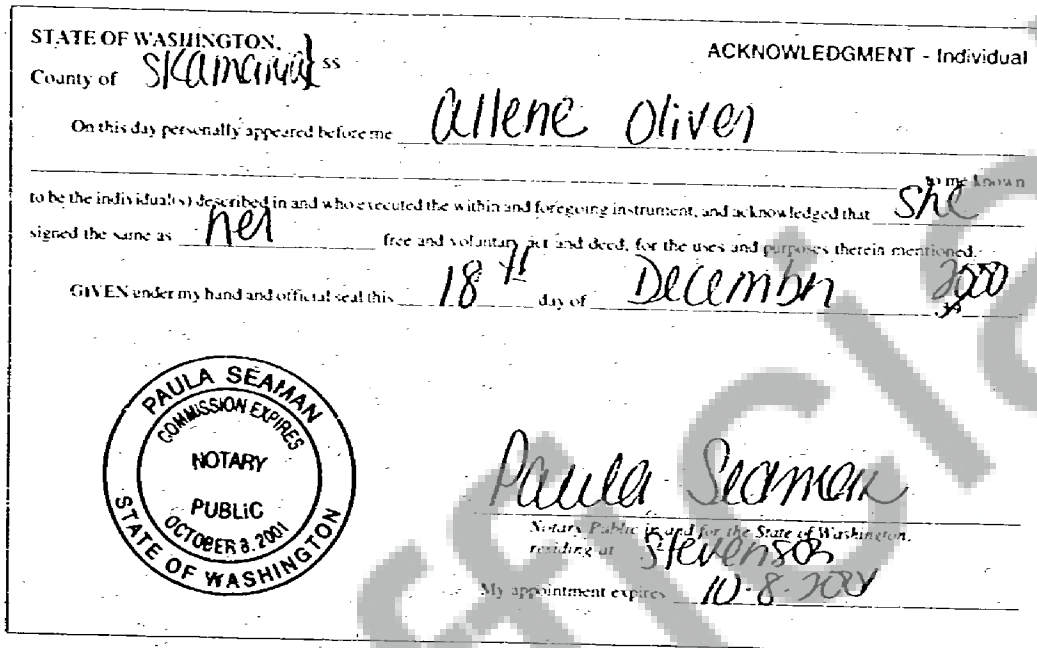 STATE OF WASHINGTON, } ss
ACKNOWLEDGMENT - Individual
County of Skamania
On this day personally appeared before me Arlene Oliver
to me known
to be the individual(s) described in and who executed the within and foregoing instrument, and acknowledged that She
signed the same as her free and voluntary act and deed, for the uses and purposes therein mentioned.
GIVEN under my hand and official seal this 18th day of December 2000
PAULA SEAMAN
COMMISSION EXPIRES
NOTARY
PUBLIC
OCTOBER 8, 2001
STATE OF WASHINGTON
Paula Seaman
Notary Public in and for the State of Washington,
residing at Stevenson
My appointment expires 10-8-2001